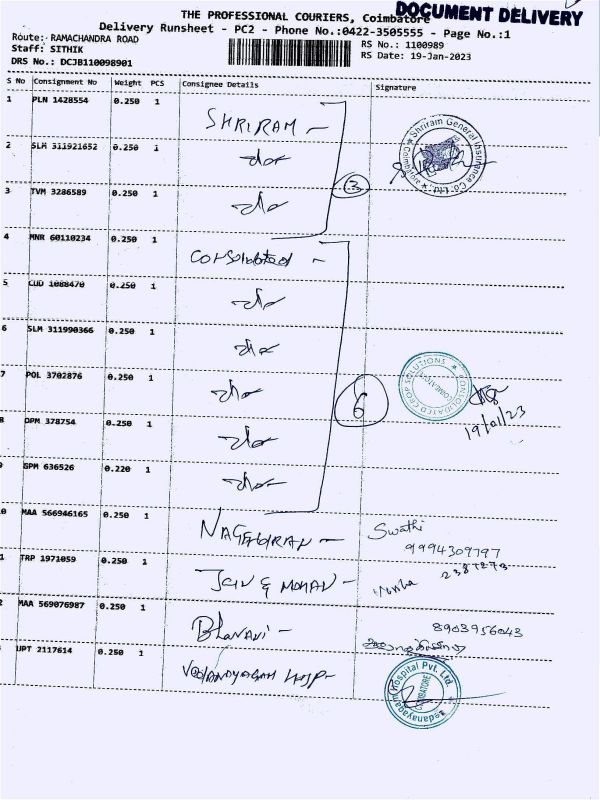 DOCUMENT DELIVERY
THE PROFESSIONAL COURIERS, Coimbatore
Delivery Runsheet - PC2 - Phone No.:0422-3505555 - Page No.:1
Route: RAMACHANDRA ROAD
RS No.: 1100989
Staff: SITHIK
RS Date: 19-Jan-2023
DRS No.: DCJB110098901
S No Consignment No Weight PCS Consignee Details Signature
1 PLN 1428554 0.250 1 SHRIRAM -
Shriram General Insurance Co. Ltd. Coimbatore
2 SLM 311921652 0.250 1 -do-
3 TVM 3286589 0.250 1 -do-
3
4 MNR 60110234 0.250 1 Consolidated -
5 CUD 1088470 0.250 1 -do-
6 SLM 311990366 0.250 1 -do-
7 POL 3702876 0.250 1 -do-
CONSOLIDATED CORP SOLUTIONS COIMBATORE
6
19/01/23
8 DPM 378754 0.250 1 -do-
9 GPM 636526 0.220 1 -do-
0 MAA 566946165 0.250 1 Swathi
9994309797
1 TRP 1971059 0.250 1 JAIN & MOHAN -
2 MAA 569076987 0.250 1 Bhavani - 8903956043
UPT 2117614 0.250 1
Vedanayagam Hospital Pvt. Ltd. COIMBATORE